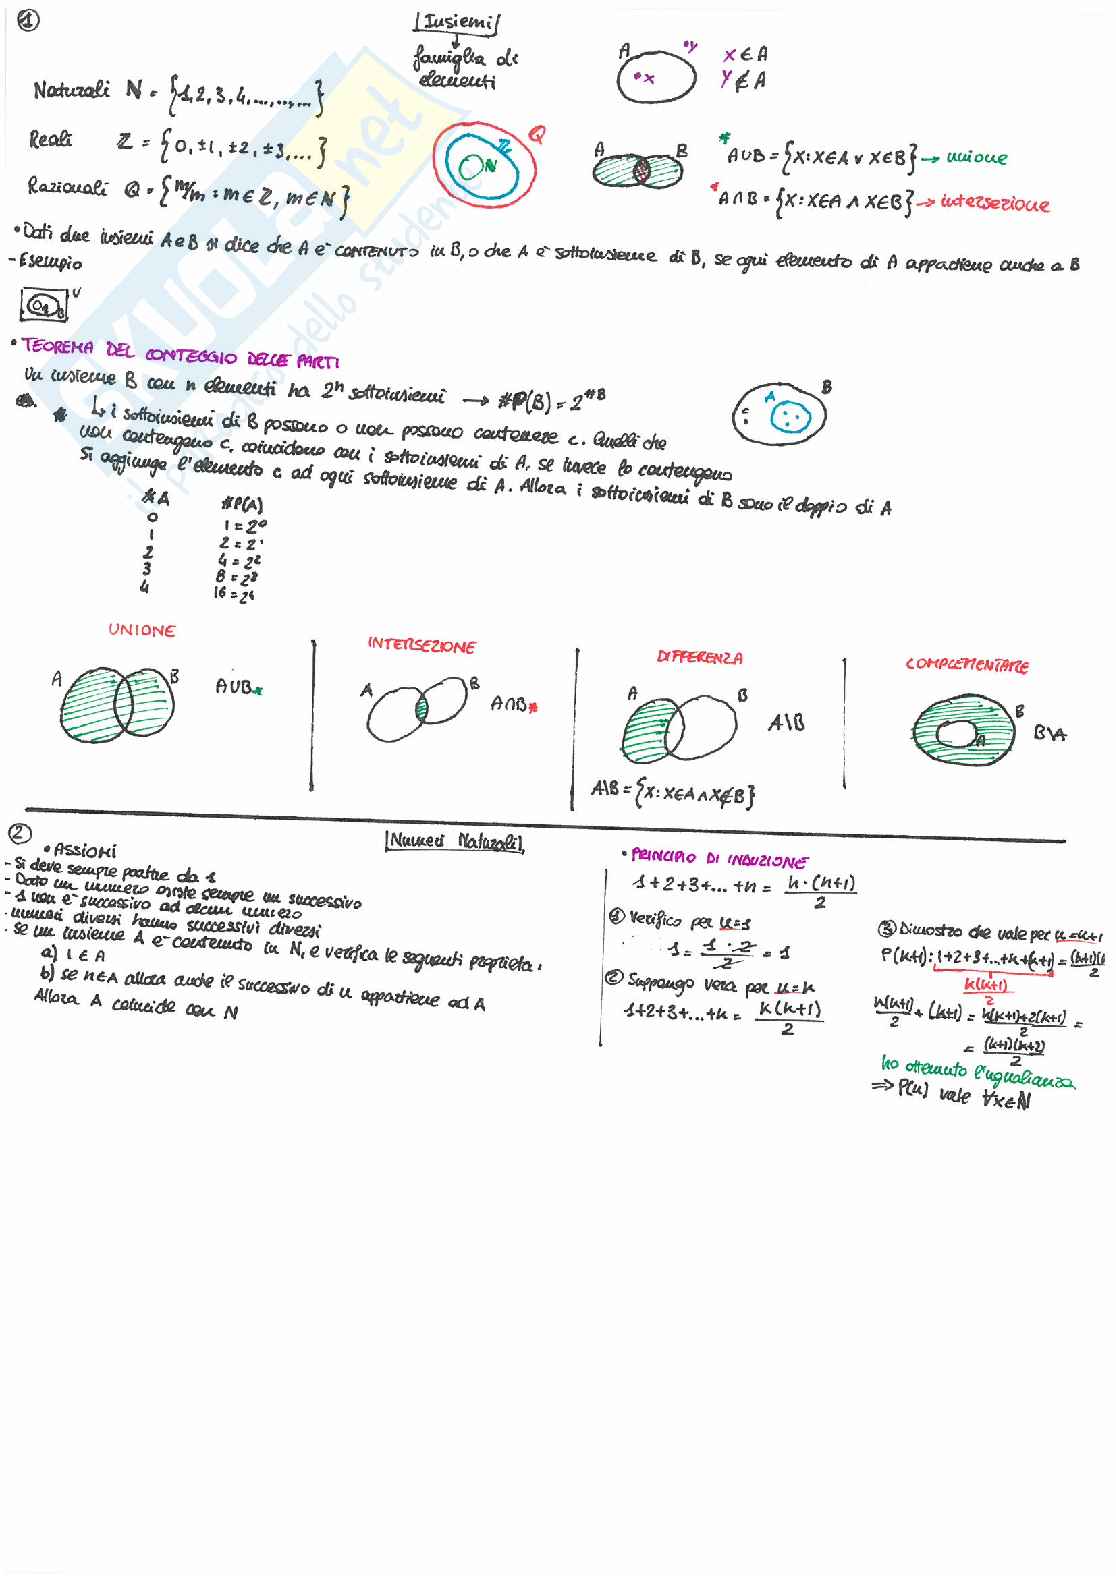 ①
Insiemi
famiglia di
elementi
Naturali N = {1,2,3,4,...,...,...}
Reali Z = {0,±1,±2,±3,...}
Razionali Q = {m/m : m∈Z, m∈N}
Q
Z
N
A
•x
•y
x∈A
y∉A
A B
* A∪B = {x: x∈A ∨ x∈B} → unione
* A∩B = {x: x∈A ∧ x∈B} → intersezione
• Dati due insiemi A e B si dice che A è CONTENUTO in B, o che A è sottoinsieme di B, se ogni elemento di A appartiene anche a B
- Esempio
U
B
• TEOREMA DEL CONTEGGIO DELLE PARTI
Un insieme B con n elementi ha 2ⁿ sottoinsiemi → #P(B) = 2^#B
* ↳ i sottoinsiemi di B possono o non possono contenere c. Quelli che
non contengono c, coincidono con i sottoinsiemi di A, se invece lo contengono
Si aggiunge l'elemento c ad ogni sottoinsieme di A. Allora i sottoinsiemi di B sono il doppio di A
A
B
#A #P(A)
0 1 = 2⁰
1 2 = 2¹
2 4 = 2²
3 8 = 2³
4 16 = 2⁴
UNIONE
A B A∪B*
INTERSEZIONE
A B A∩B*
DIFFERENZA
A B A\B
A\B = {x: x∈A ∧ x∉B}
COMPLEMENTARE
B
A
B\A
②
Numeri Naturali
• ASSIOMI
- Si deve sempre partire da 1
- Dato un numero esiste sempre un successivo
- 1 non è successivo ad alcun numero
- numeri diversi hanno successivi diversi
- Se un insieme A è contenuto in N, e verifica le seguenti proprietà:
a) 1∈A
b) se n∈A allora anche il successivo di n appartiene ad A
Allora A coincide con N
• PRINCIPIO DI INDUZIONE
1+2+3+...+n = n·(n+1)/2
① Verifico per n=1
1 = 1·2/2 = 1
② Suppongo vera per n=k
1+2+3+...+k = k(k+1)/2
③ Dimostro che vale per n=k+1
P(k+1): 1+2+3+...+k+(k+1) = (k+1)(k/2
k(k+1)/2
k(k+1)/2 + (k+1) = k(k+1)+2(k+1)/2 =
= (k+1)(k+2)/2
ho ottenuto l'uguaglianza
⇒ P(n) vale ∀x∈N
SKUOLA.net
il paradiso dello studente